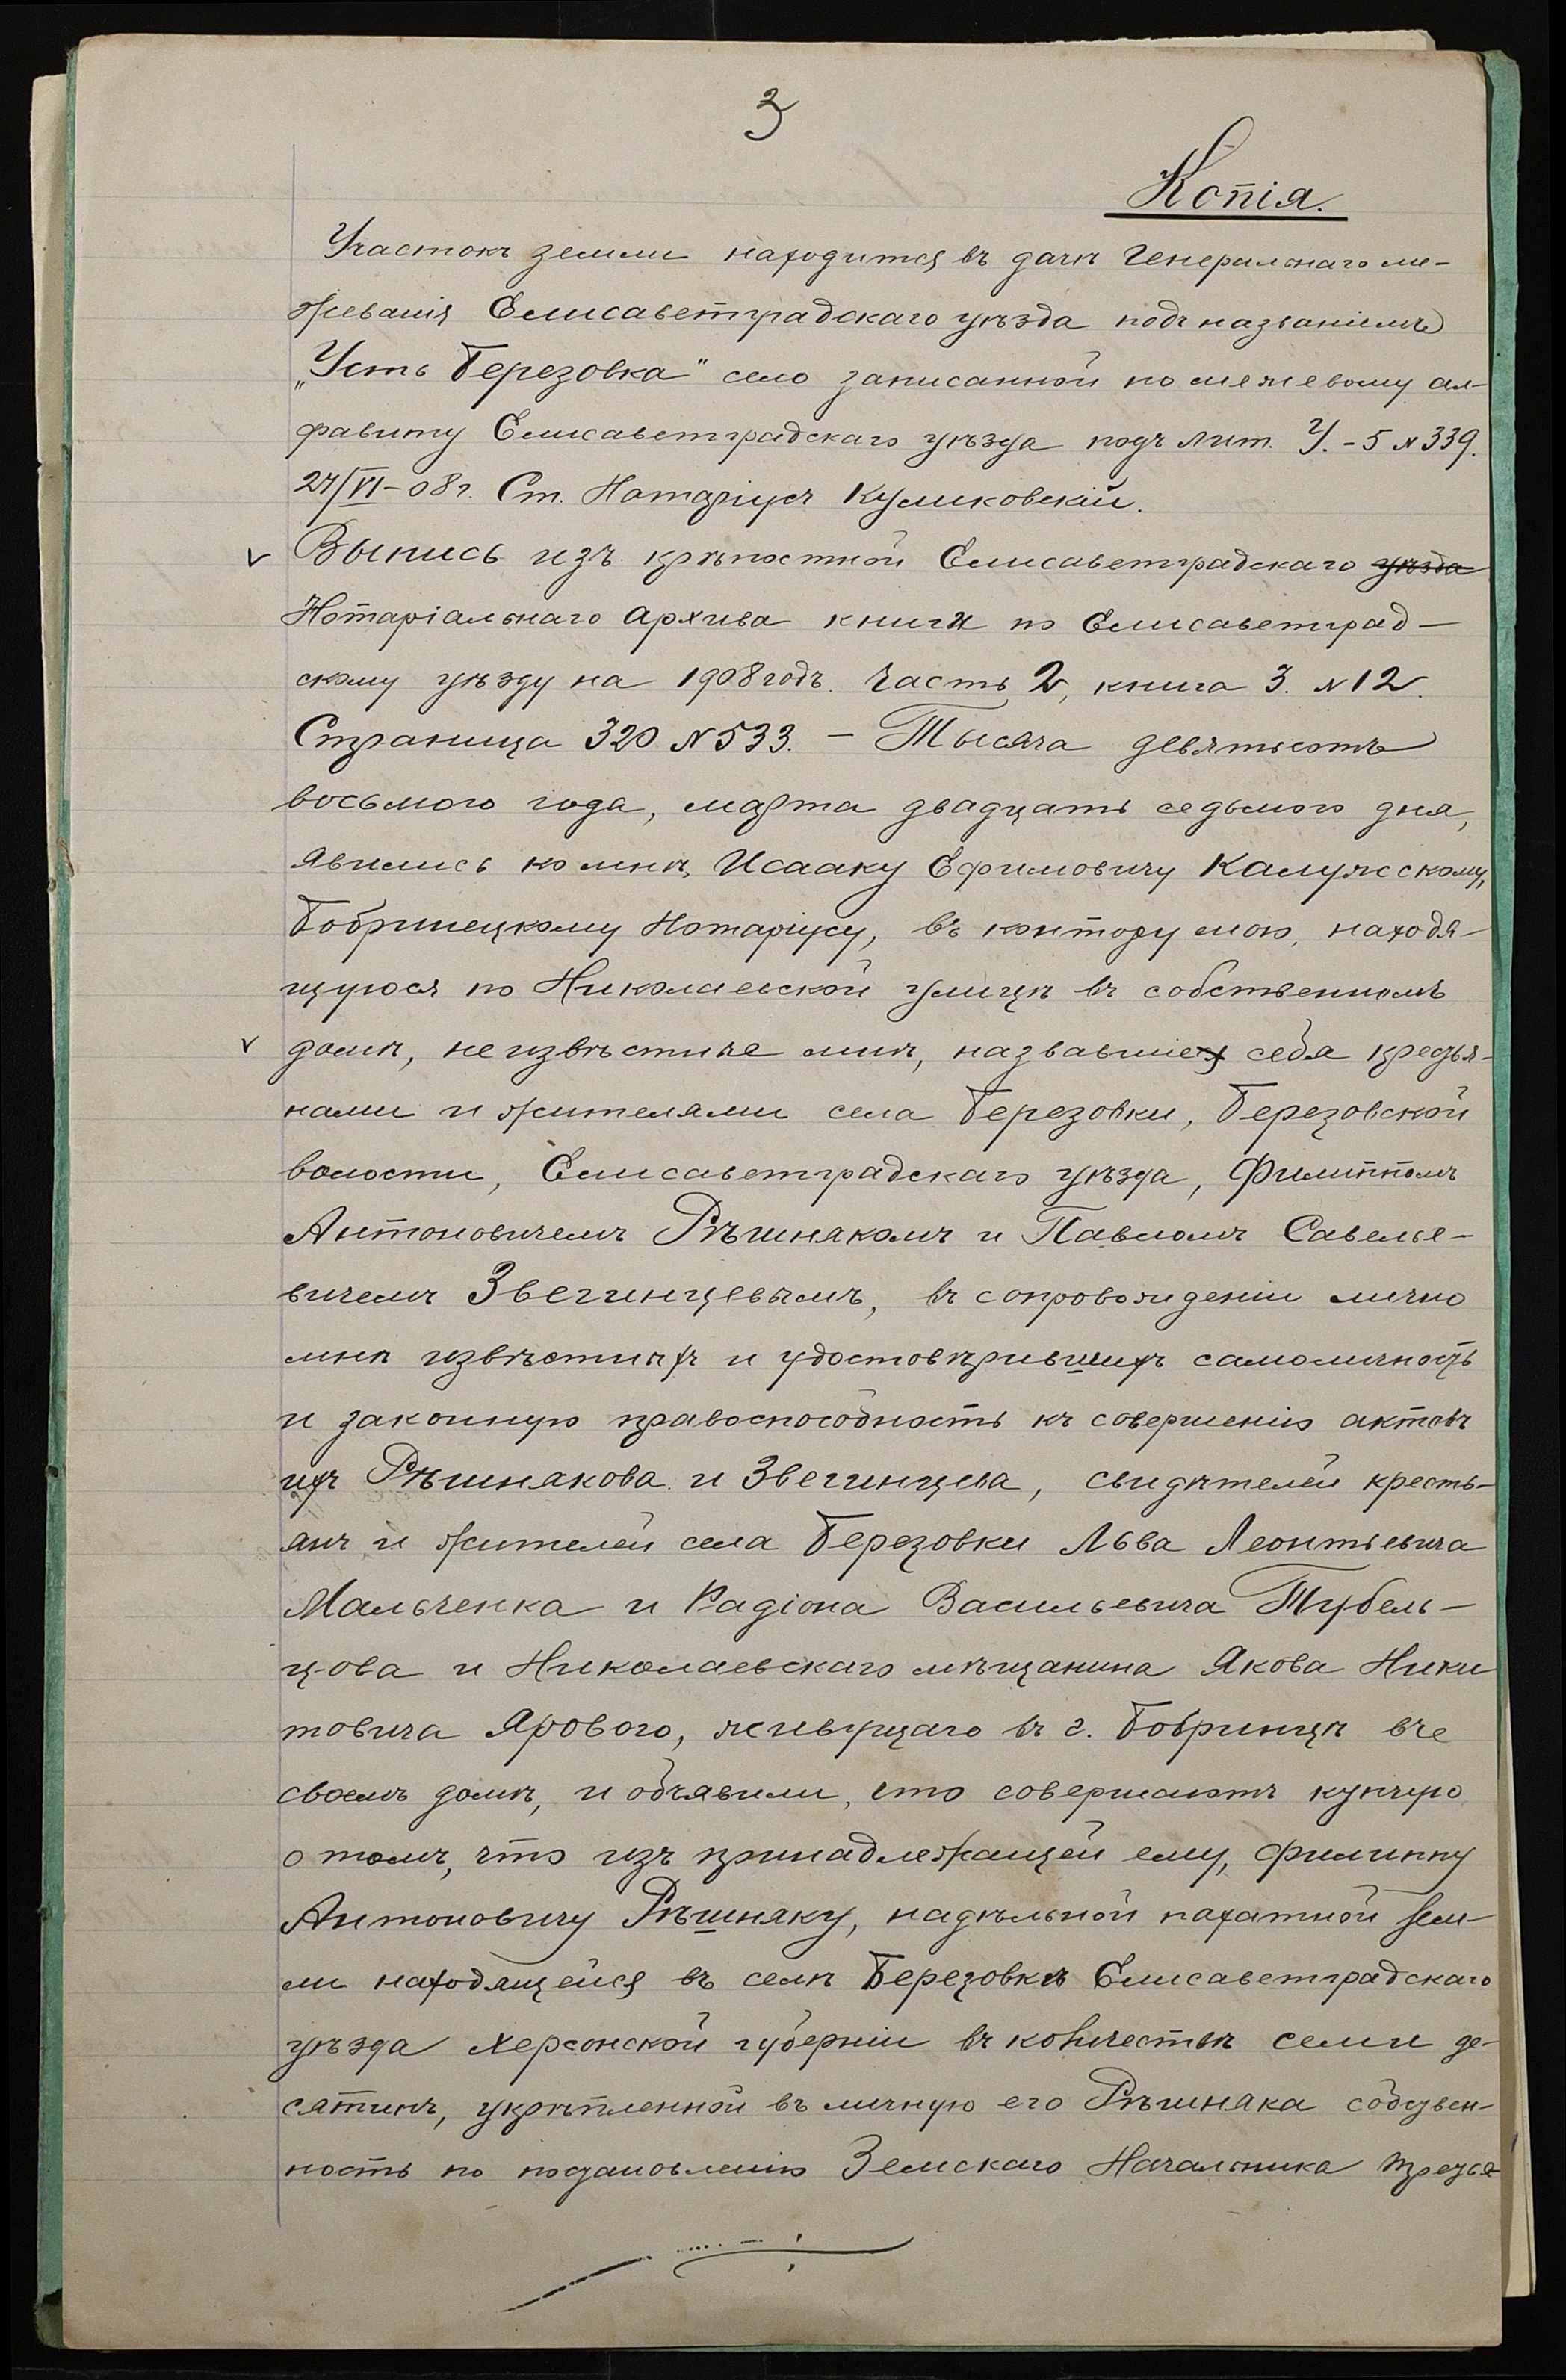 3
Копія.
Участокъ земли находится въ дачѣ Генеральнаго ме-
жеванія Елисаветградскаго уѣзда подъ названіемъ
„Усть Березовка" село записанной по межевому ал-
фавиту Елисаветградскаго уѣзда подъ лит. У.-5 № 339.
27/VI-08 г. Ст. Нотаріусъ Куликовскій.
Выпись изъ крѣпостной Елисаветградскаго уѣзда
Нотаріальнаго Архива книги по Елисаветград-
скому уѣзду на 1908 годъ. Часть 2, книга 3. № 12.
Страница 320 № 533. - Тысяча девятьсотъ
восьмого года, марта двадцать седьмого дня,
явились ко мнѣ, Исааку Ефимовичу Калужскому,
Бобринецкому Нотаріусу, въ контору мою, находя-
щуюся по Николаевской улицѣ въ собственномъ
домѣ, неизвѣстные мнѣ, назвавшіеся себя крестья-
нами и жителями села Березовки, Березовской
волости, Елисаветградскаго уѣзда, Филиппомъ
Антоновичемъ Рѣшнякомъ и Павломъ Савелье-
вичемъ Звегинцевымъ, въ сопровожденіи лично
мнѣ извѣстныхъ и удостовѣрившихъ самоличность
и законную правоспособность къ совершенію актовъ
ихъ Рѣшнякова и Звегинцева, свидѣтелей кресть-
янъ и жителей села Березовки Льва Леонтьевича
Мальченка и Радіона Васильевича Тубель-
цова и Николаевскаго мѣщанина Якова Ники
товича Ярового, живущаго въ г. Бобринцѣ въ
своемъ домѣ, и объявили, что совершаютъ купчую
о томъ, что изъ принадлежащей ему, Филиппу
Антоновичу Рѣшняку, надѣльной пахатной зем-
ли находящейся въ селѣ Березовкѣ Елисаветградскаго
уѣзда Херсонской губерніи въ количествѣ семи де-
сятинъ, укрѣпленной въ личную его Рѣшняка собствен-
ность по постановленію Земскаго Начальника третья-